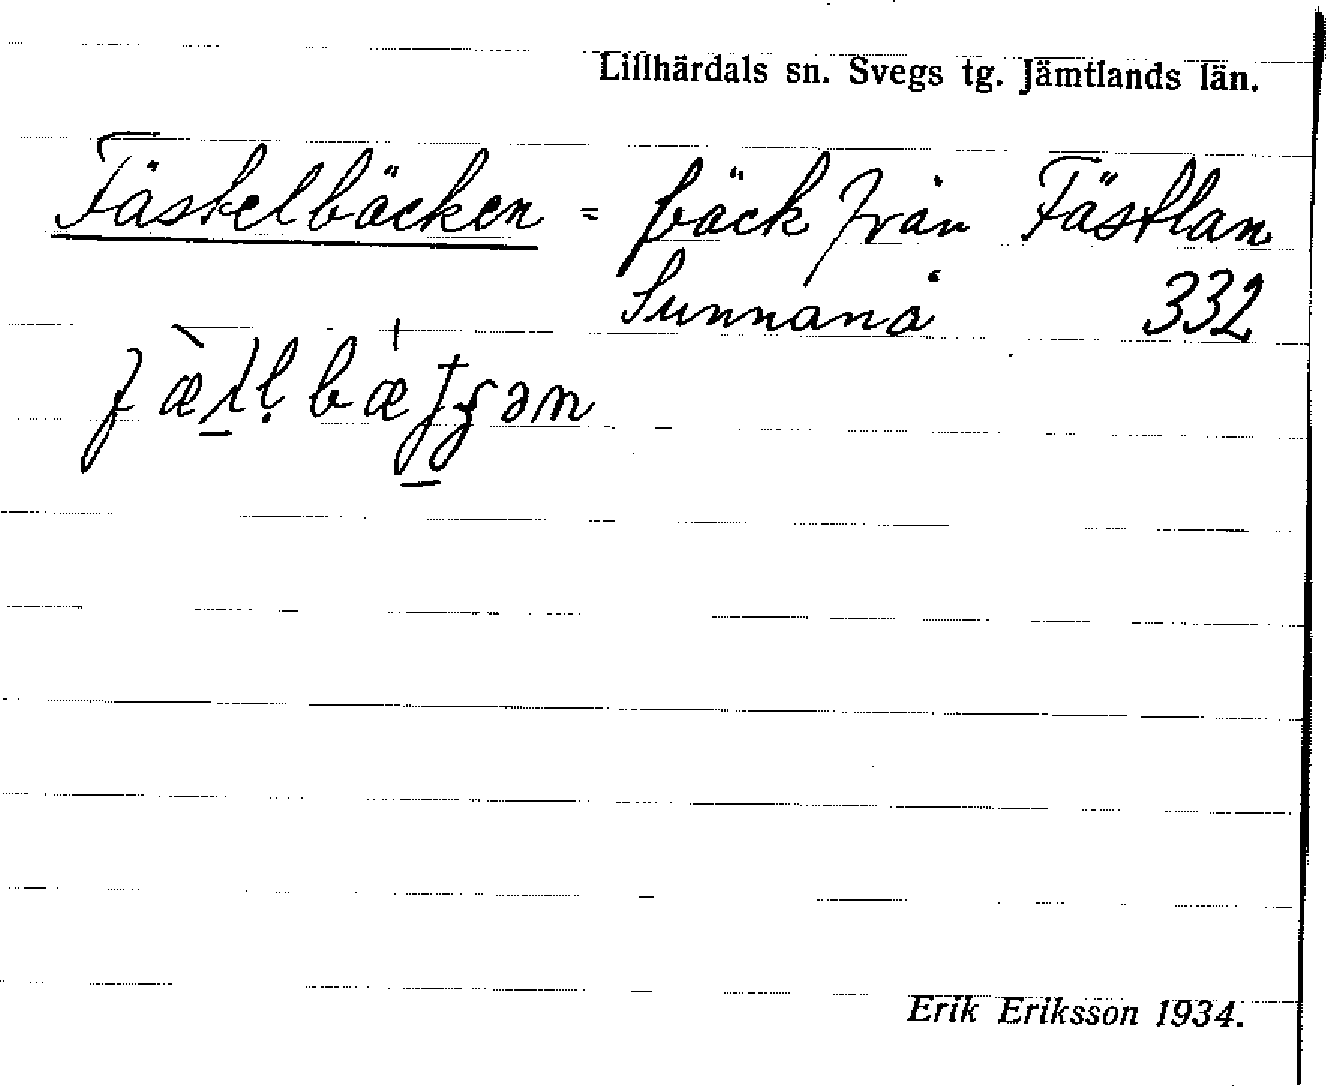 Lillhärdals sn. Svegs tg. Jämtlands län.
Fäskelbäcken = bäck från Fästlan
Sunnanå 332
Erik Eriksson 1934.